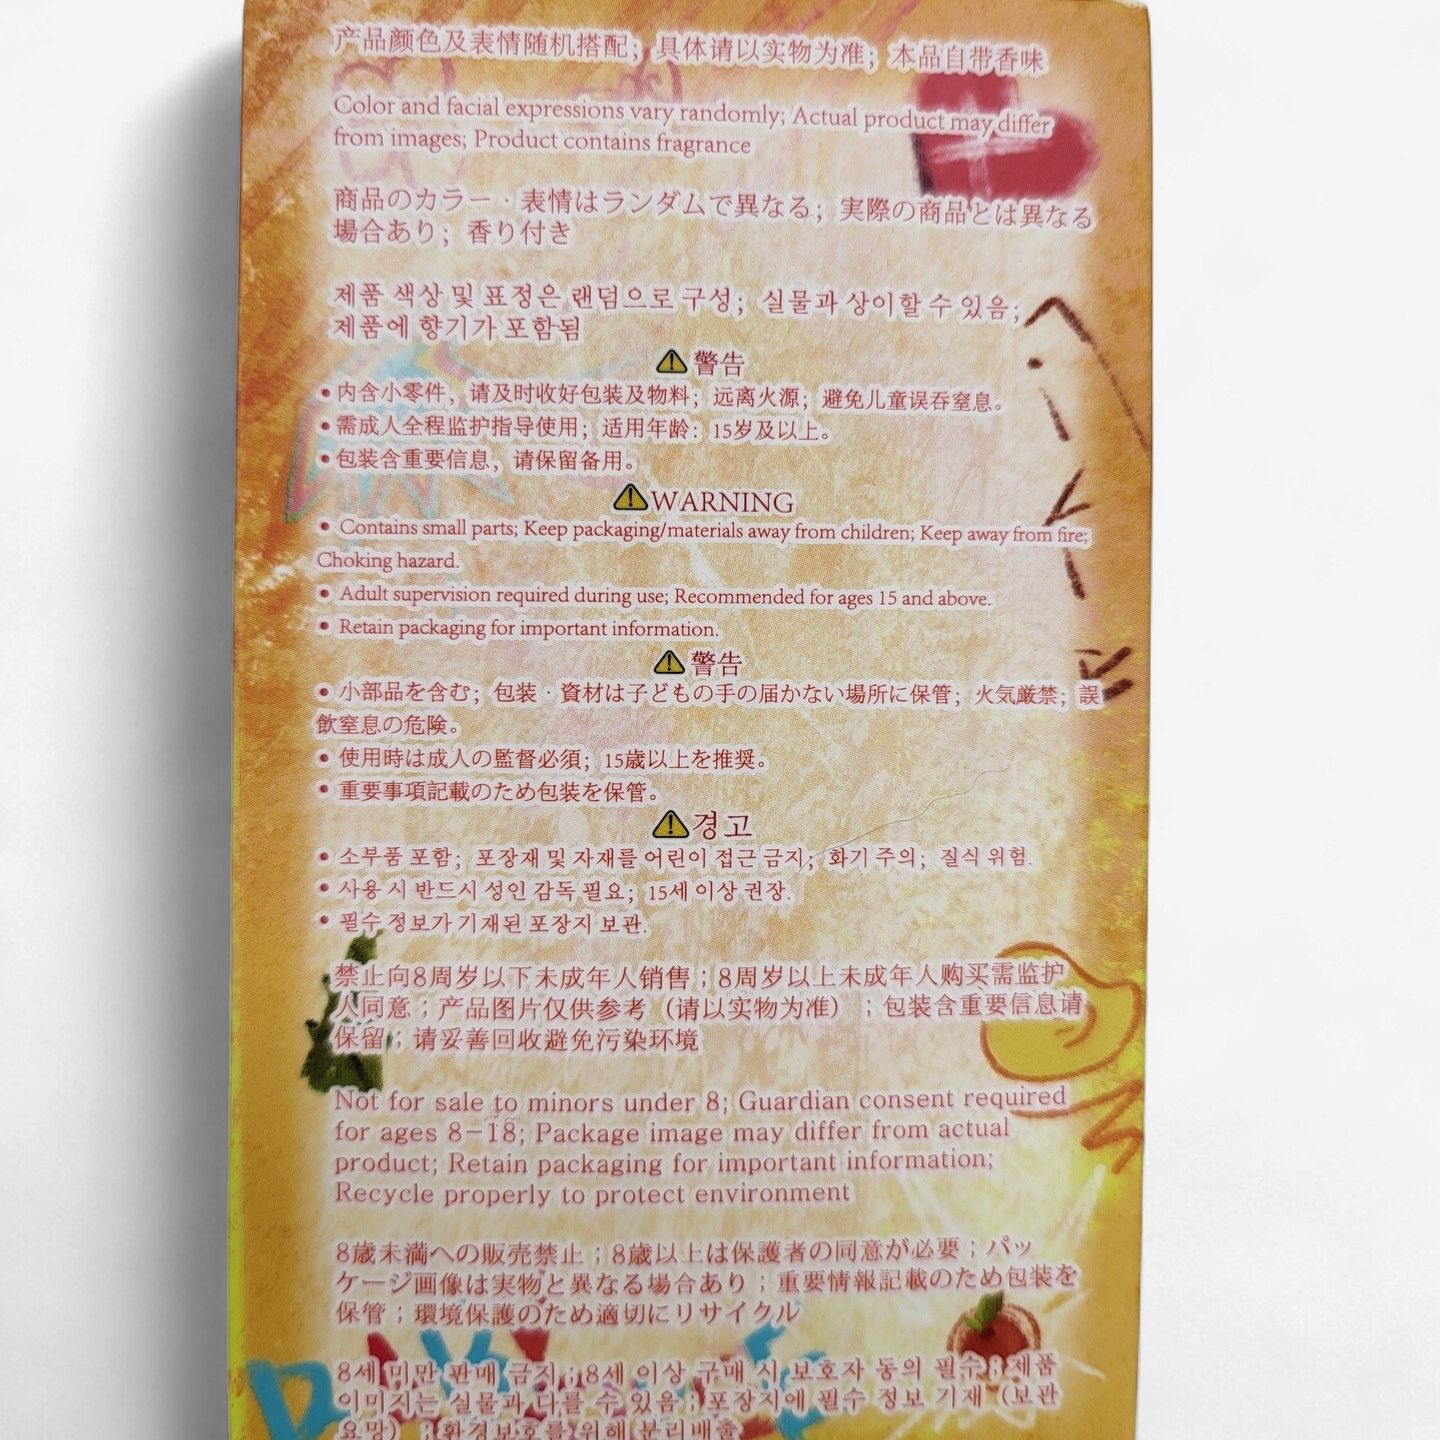 产品颜色及表情随机搭配；具体请以实物为准；本品自带香味
Color and facial expressions vary randomly; Actual product may differ
from images; Product contains fragrance
商品のカラー・表情はランダムで異なる；実際の商品とは異なる
場合あり；香り付き
제품 색상 및 표정은 랜덤으로 구성; 실물과 상이할 수 있음;
제품에 향기가 포함됨
⚠警告
• 内含小零件，请及时收好包装及物料；远离火源；避免儿童误吞窒息。
• 需成人全程监护指导使用；适用年龄：15岁及以上。
• 包装含重要信息，请保留备用。
⚠WARNING
• Contains small parts; Keep packaging/materials away from children; Keep away from fire;
Choking hazard.
• Adult supervision required during use; Recommended for ages 15 and above.
• Retain packaging for important information.
⚠警告
• 小部品を含む；包装・資材は子どもの手の届かない場所に保管；火気厳禁；誤
飲窒息の危険。
• 使用時は成人の監督必須；15歳以上を推奨。
• 重要事項記載のため包装を保管。
⚠경고
• 소부품 포함; 포장재 및 자재를 어린이 접근 금지; 화기 주의; 질식 위험.
• 사용 시 반드시 성인 감독 필요; 15세 이상 권장.
• 필수 정보가 기재된 포장지 보관.
禁止向8周岁以下未成年人销售；8周岁以上未成年人购买需监护
人同意；产品图片仅供参考（请以实物为准）；包装含重要信息请
保留；请妥善回收避免污染环境
Not for sale to minors under 8; Guardian consent required
for ages 8-18; Package image may differ from actual
product; Retain packaging for important information;
Recycle properly to protect environment
8歳未満への販売禁止；8歳以上は保護者の同意が必要；パッ
ケージ画像は実物と異なる場合あり；重要情報記載のため包装を
保管；環境保護のため適切にリサイクル
8세 미만 판매 금지；8세 이상 구매 시 보호자 동의 필수；제품
이미지는 실물과 다를 수 있음；포장지에 필수 정보 기재（보관
요망）；환경보호를 위해 분리배출